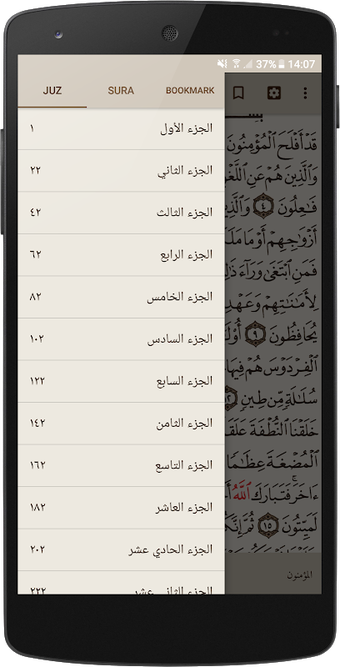 37% 14:07
JUZ SURA BOOKMARK
الجزء الأول ١
الجزء الثاني ٢٢
الجزء الثالث ٤٢
الجزء الرابع ٦٢
الجزء الخامس ٨٢
الجزء السادس ١٠٢
الجزء السابع ١٢٢
الجزء الثامن ١٤٢
الجزء التاسع ١٦٢
الجزء العاشر ١٨٢
الجزء الحادي عشر ٢٠٢
الجزء الثاني عشر ٢٢٢
قَدْ أَفْلَحَ الْمُؤْمِنُونَ
وَالَّذِينَ هُمْ عَنِ اللَّغْوِ
فَاعِلُونَ ٤ وَالَّذِينَ
أَزْوَاجِهِمْ أَوْ مَا مَلَكَتْ
فَمَنِ ابْتَغَىٰ وَرَاءَ ذَٰلِكَ
لِأَمَانَاتِهِمْ وَعَهْدِهِمْ
يُحَافِظُونَ ٩ أُولَٰئِكَ
الْفِرْدَوْسَ هُمْ فِيهَا
سُلَالَةٍ مِّن طِينٍ ١٢
خَلَقْنَا النُّطْفَةَ عَلَقَةً
الْمُضْغَةَ عِظَامًا
ءَاخَرَ فَتَبَارَكَ اللَّهُ
لَمَيِّتُونَ ١٥ ثُمَّ إِنَّكُمْ
المؤمنون